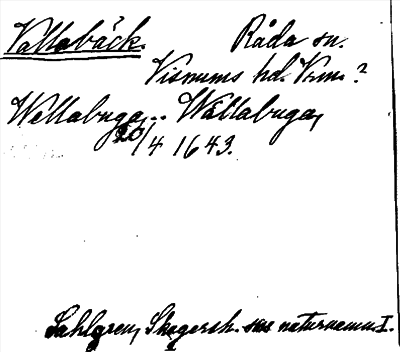 Vallabäck. Råda sn.
Visnums hd. Vrm. ?
Wellabuga, .. Wällabuga,
20/4 1643.
Sahlgren, Skagersh. sns naturnamn I.